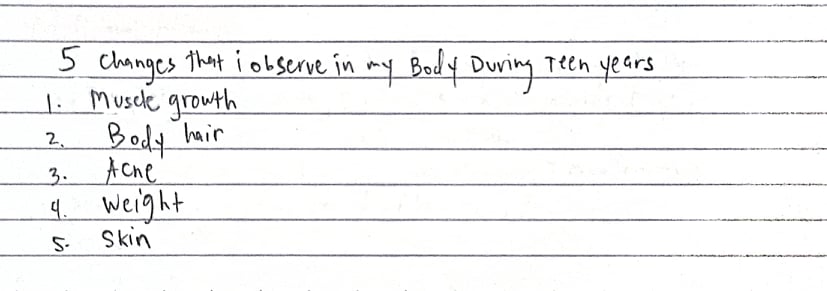 5 changes that i observe in my Body During Teen years
1. Muscle growth
2. Body hair
3. Acne
4. Weight
5. Skin